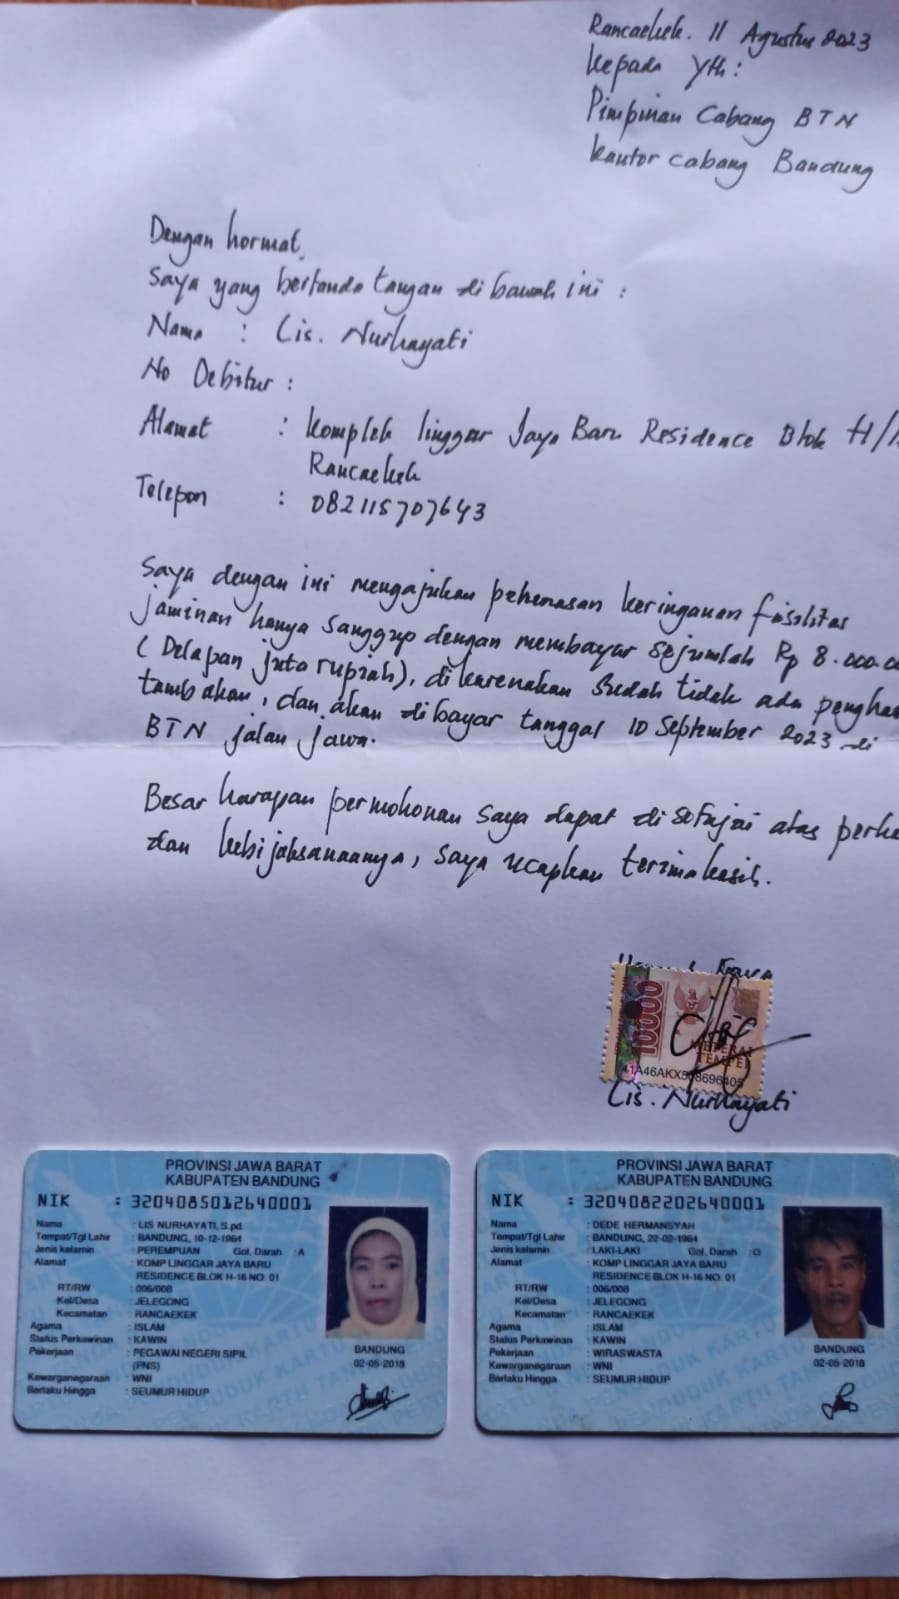 Rancaekek. 11 Agustus 2023
kepada Yth:
Pimpinan Cabang BTN
kantor cabang Bandung
Dengan hormat,
Saya yang bertanda tangan di bawah ini :
Nama : Lis. Nurhayati
No Debitur :
Alamat : Komplek linggar Jaya Baru Residence Blok H/
Rancaekek
Telepon : 082115707643
Saya dengan ini mengajukan keringanan fasilitas
jaminan hanya sanggup dengan membayar sejumlah Rp 8.000.0
(Delapan juta rupiah), di karenakan sudah tidak ada
tambahan, dan akan di bayar tanggal 10 September 2023 di
BTN jalan jawa.
Besar harapan permohonan saya dapat di setujui atas
dan kebijaksanaannya, saya ucapkan terimakasih.
10000
METERAI
TEMPEL
Lis. Nurhayati
PROVINSI JAWA BARAT
KABUPATEN BANDUNG
NIK : 3204085012640001
Nama : LIS NURHAYATI, S.pd.
Tempat/Tgl Lahir : BANDUNG, 10-12-1964
Jenis kelamin : PEREMPUAN Gol. Darah :A
Alamat : KOMP LINGGAR JAYA BARU
RESIDENCE BLOK H-16 NO. 01
RT/RW : 006/008
Kel/Desa : JELEGONG
Kecamatan : RANCAEKEK
Agama : ISLAM
Status Perkawinan : KAWIN
Pekerjaan : PEGAWAI NEGERI SIPIL
(PNS)
Kewarganegaraan : WNI
Berlaku Hingga : SEUMUR HIDUP
BANDUNG
02-05-2018
PROVINSI JAWA BARAT
KABUPATEN BANDUNG
NIK : 3204082202640001
Nama : DEDE HERMANSYAH
Tempat/Tgl Lahir : BANDUNG, 22-02-1964
Jenis kelamin : LAKI-LAKI Gol. Darah :O
Alamat : KOMP LINGGAR JAYA BARU
RESIDENCE BLOK H-16 NO. 01
RT/RW : 006/008
Kel/Desa : JELEGONG
Kecamatan : RANCAEKEK
Agama : ISLAM
Status Perkawinan : KAWIN
Pekerjaan : WIRASWASTA
Kewarganegaraan : WNI
Berlaku Hingga : SEUMUR HIDUP
BANDUNG
02-05-2018